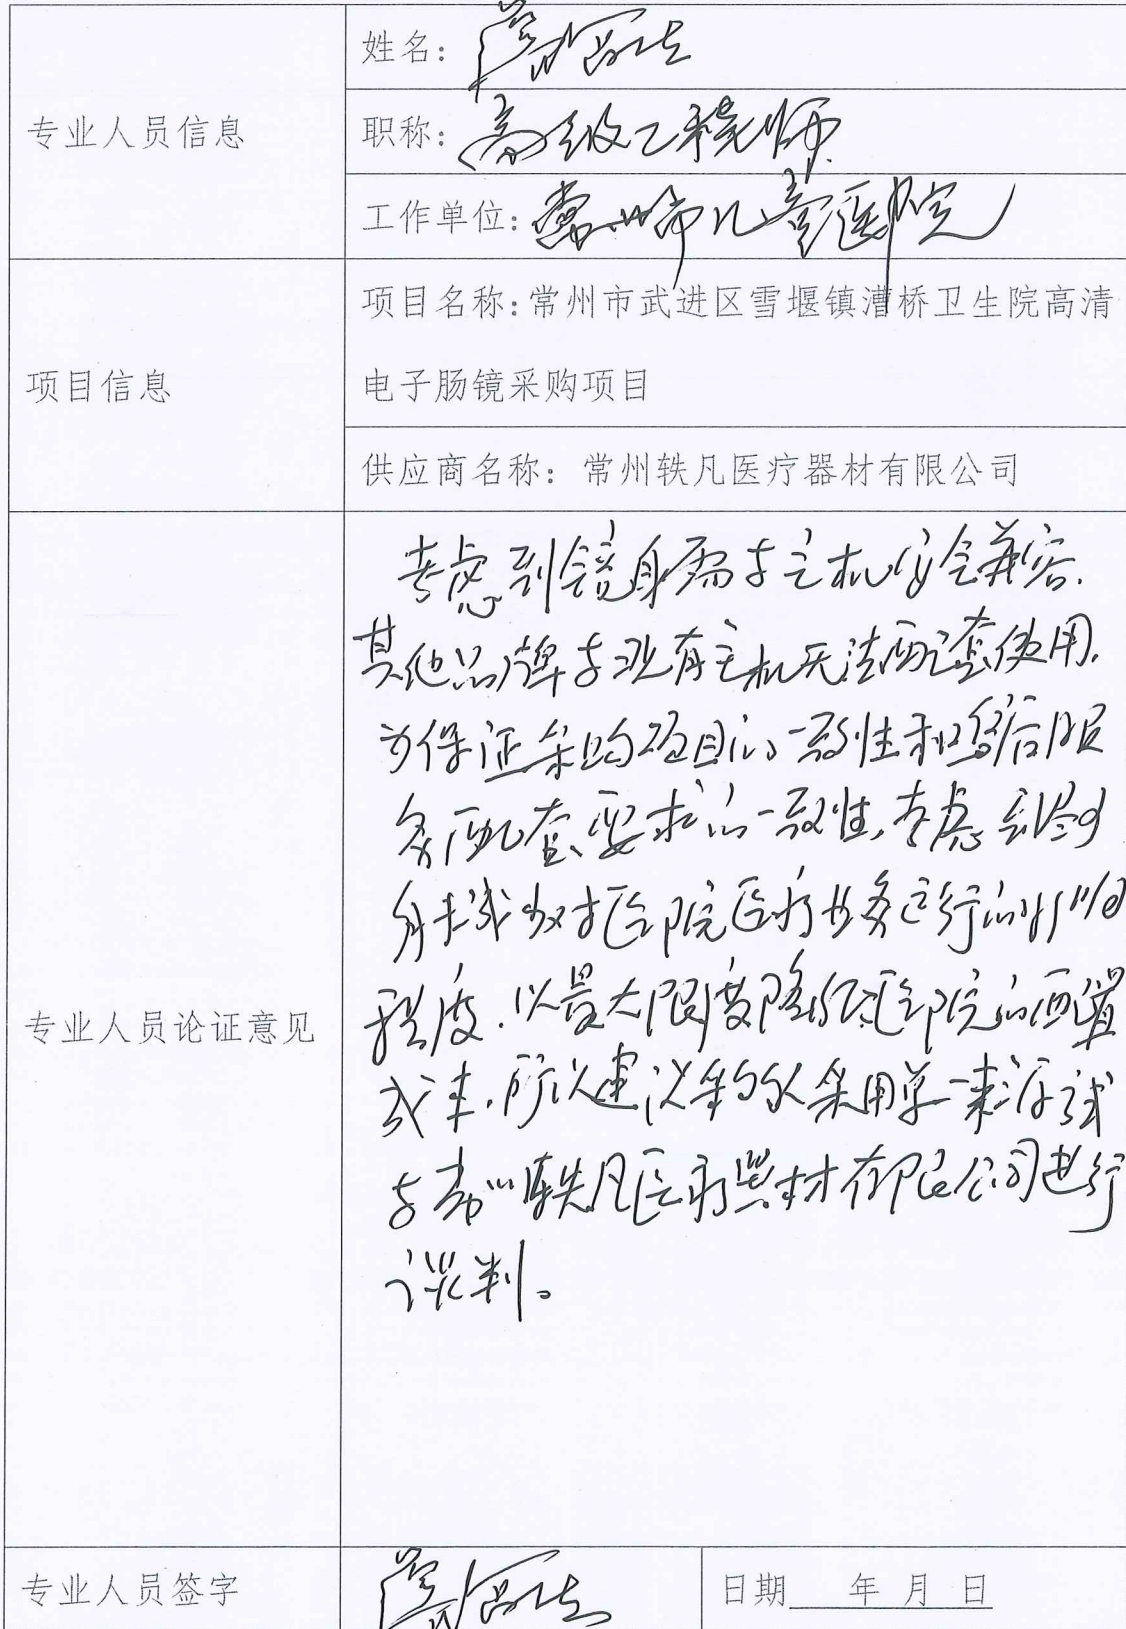 专业人员信息
姓名：
职称：高级工程师
工作单位：常州市儿童医院
项目信息
项目名称：常州市武进区雪堰镇漕桥卫生院高清
电子肠镜采购项目
供应商名称：常州轶凡医疗器材有限公司
专业人员论证意见
考虑到镜身需与主机安全兼容.
其他品牌与现有主机无法配套使用.
为保证采购项目的一致性和售后服
务配套要求的一致性,考虑到
对医院医疗业务运行的影响
程度.以最大限度降低医院的配置
成本.所以建议采用单一来源
与常州轶凡医疗器材有限公司进行
谈判。
专业人员签字
日期 年 月 日